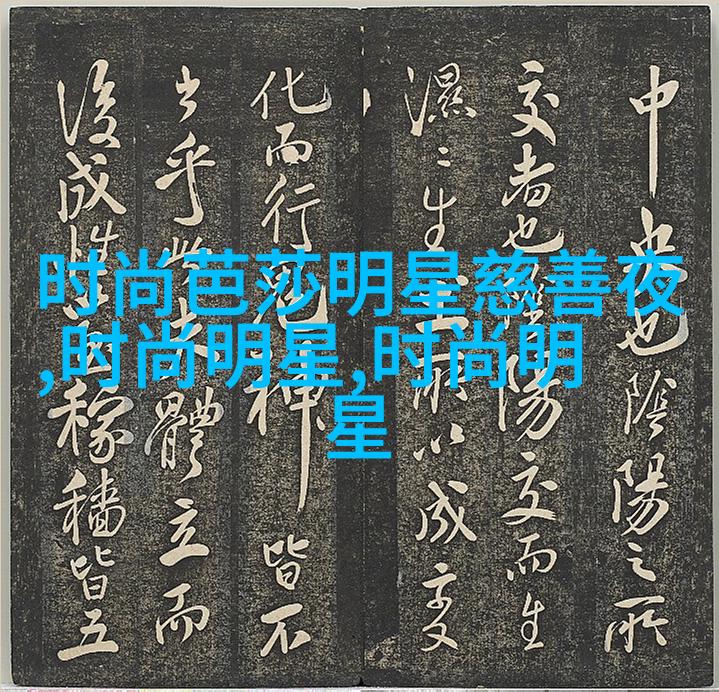 时尚芭莎明星慈善夜
,时尚明星,时尚明
星
中央也陰陽之所
交者也陰陽交而生
濕〻生土所以成变
化而行鬼神皆不
乎此夫體立而
後成性稼穡皆五